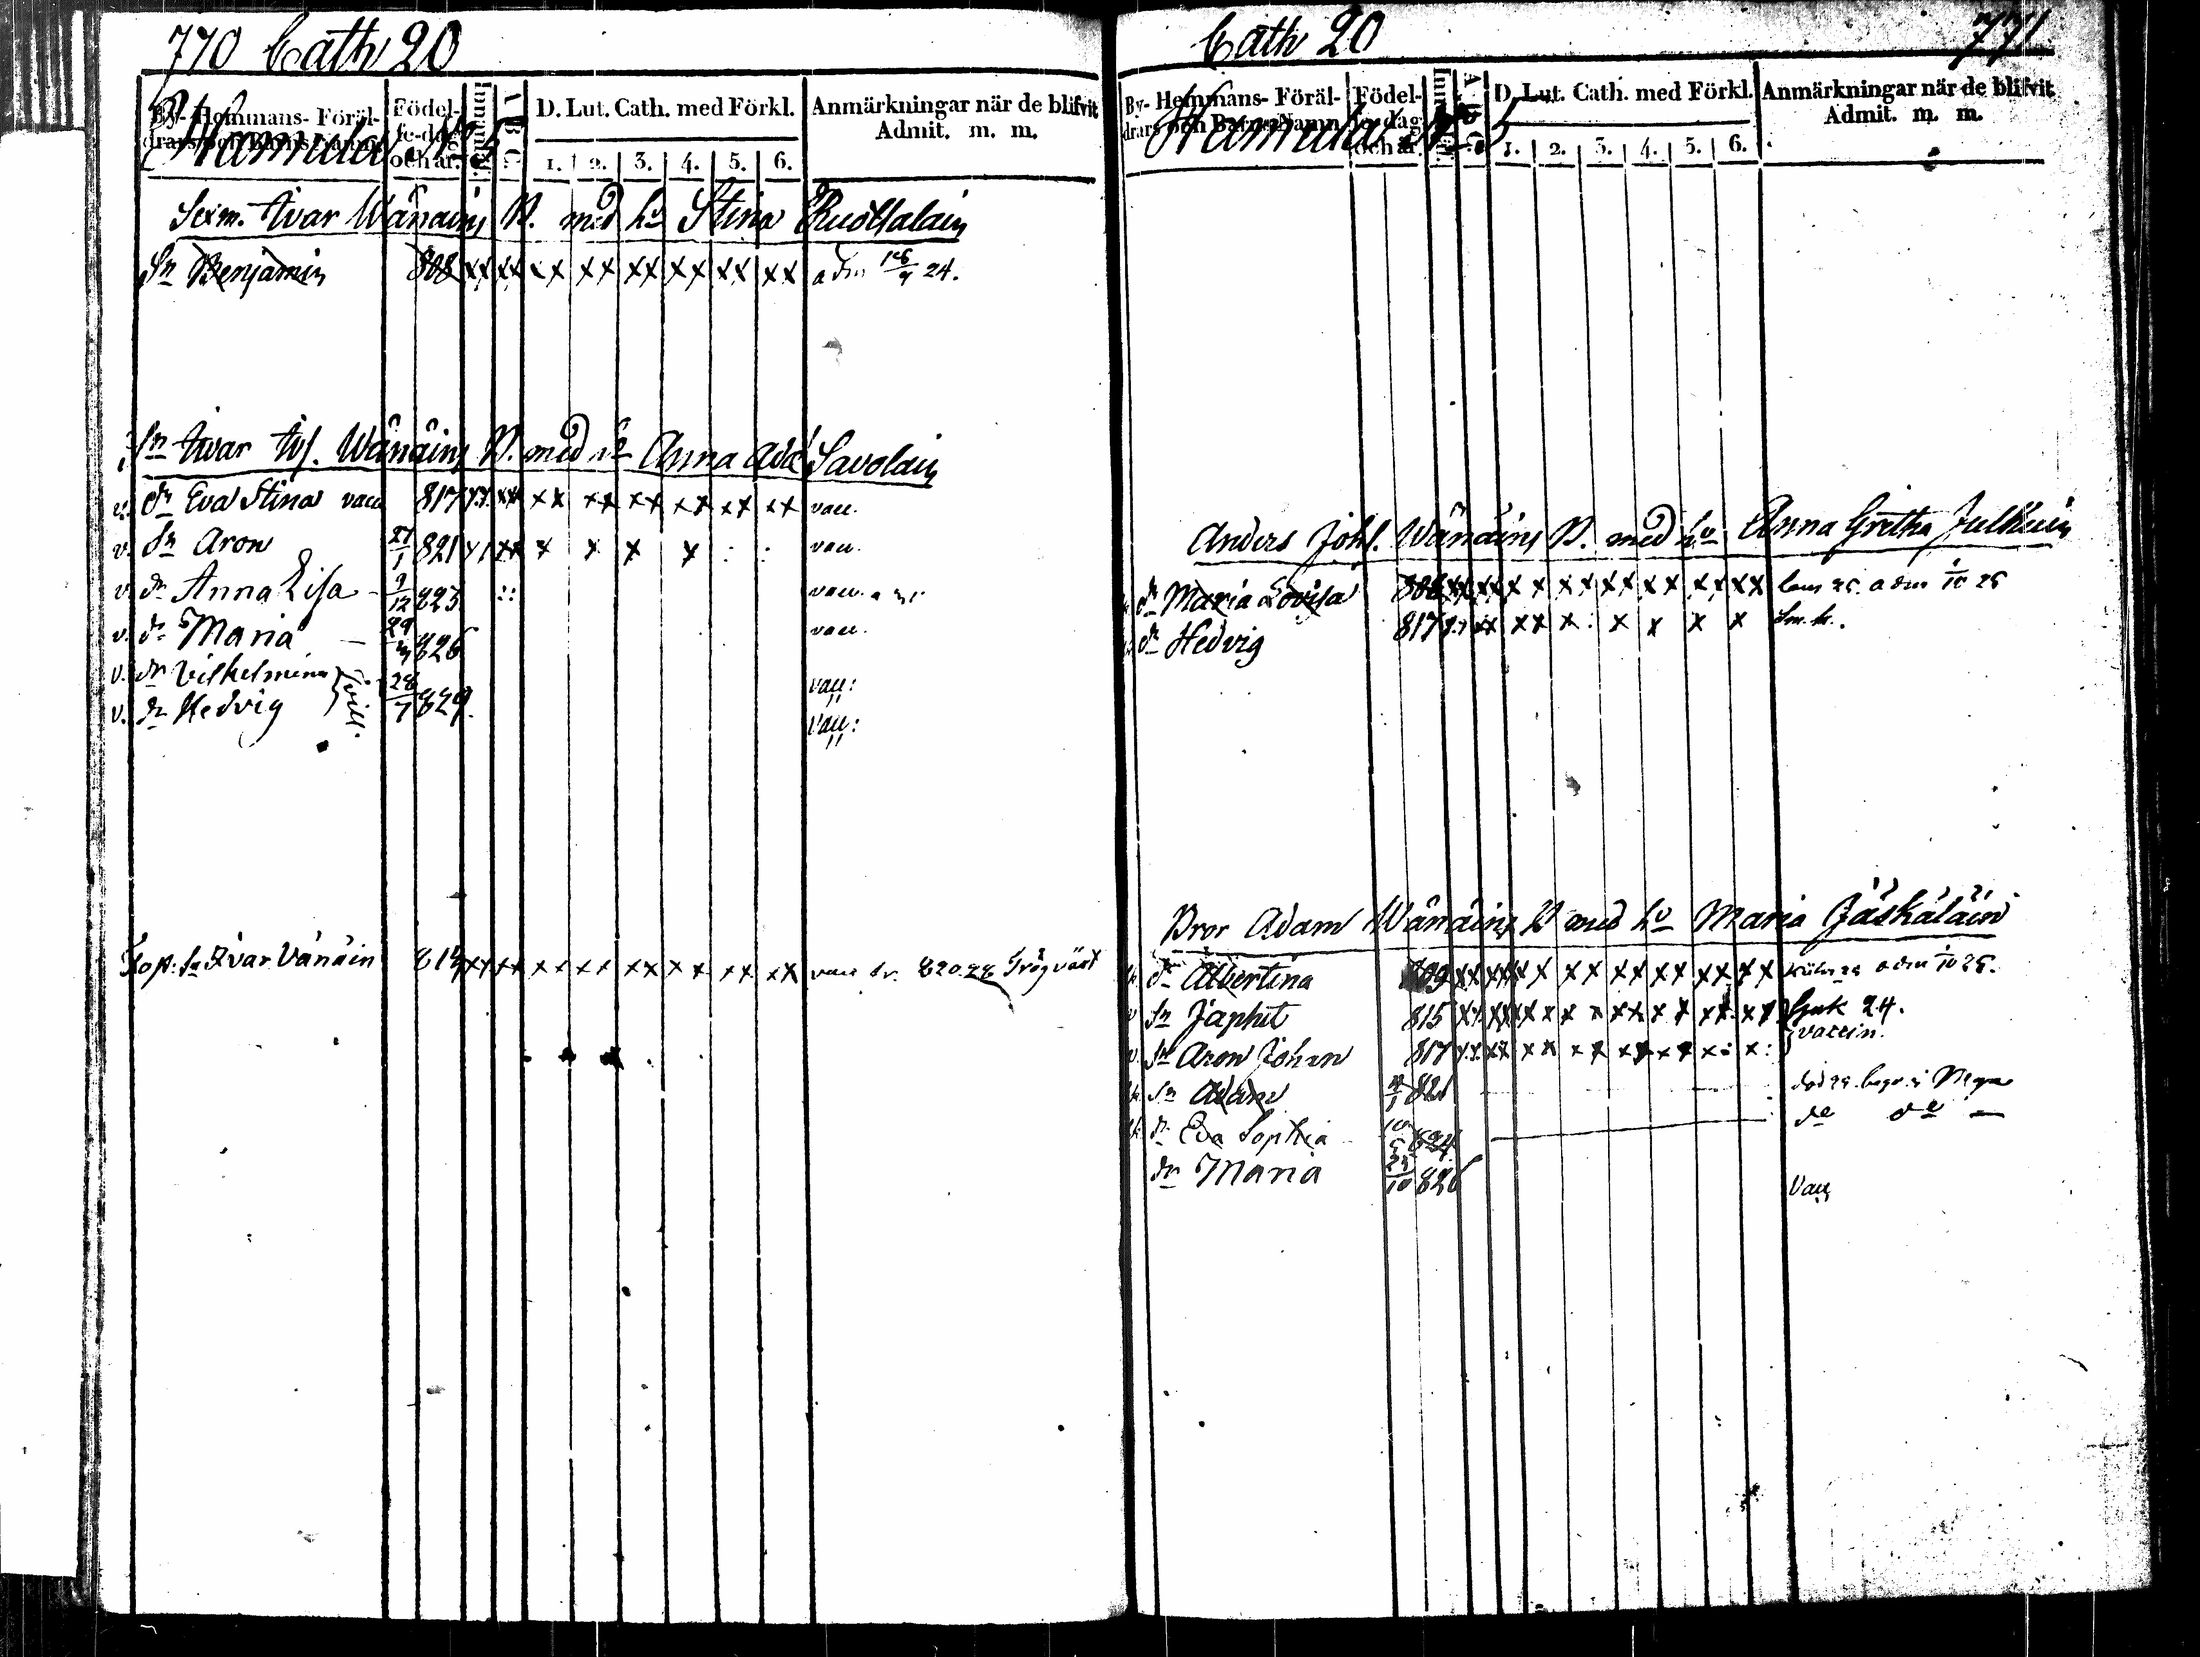 770 Cath 20
By- Hemmans- Föräl- drars och Barns Namn. Födel- se-dag och år. Innanläs. A B C D. Lut. Cath. med Förkl. Anmärkningar när de blifvit Admit. m. m.
Hamula N 5
1. 2. 3. 4. 5. 6.
Sexm. Ivar Wänäin B. med hu Stina Ruottalain
Sn Benjamin 808 xx xx xx xx xx xx xx xx adm 24.
Sn Ivar Ivs. Wänäin B. med hu Anna Savolain
v. dr Eva Stina vacc 817 xx xx xx xx xx xx xx xx vacc.
v. Sn Aron 27/1 821 x x x x vacc.
v. dr Anna Lisa 9/12 823 :: vacc.
v. dr Maria 826 vacc.
v. dr Vilhelmina } Tvill. 28/7 829. vacc:
v. dr Hedvig vacc:
Sn Ivar Vänäin 814 xx xx xx xx xx xx xx xx vacc 820. 28 Trögväxt
Cath 20 771
By- Hemmans- Föräl- drars och Barns Namn Födel- se-dag och år. Innanläs. A. B. C. D. Lut. Cath. med Förkl. Anmärkningar när de blifvit Admit. m. m.
Hamula N 5
1. 2. 3. 4. 5. 6.
Anders Johs. Wänäin B. med hu Anna Gretha Julkuin
dr Maria Lovisa 808 xx xx xx xx xx xx xx xx 25. adm 10 25
dr Hedvig 817 xx xx x: x x x x
Bror Adam Wänäin B med hu Maria Jäskäläin
dr Albertina 809 xx xx xx xx xx xx xx xx adm 10 25.
v Sn Japhet 815 xx xx xx xx xx xx xx xx 24. } vaccin.
v. Sn Aron Johan 817 xx xx xx xx xx xx x: x:
Sn Adam 821 död
dr Eva Sophia 10/5 824 do do —
dr Maria 10 826 Vacc